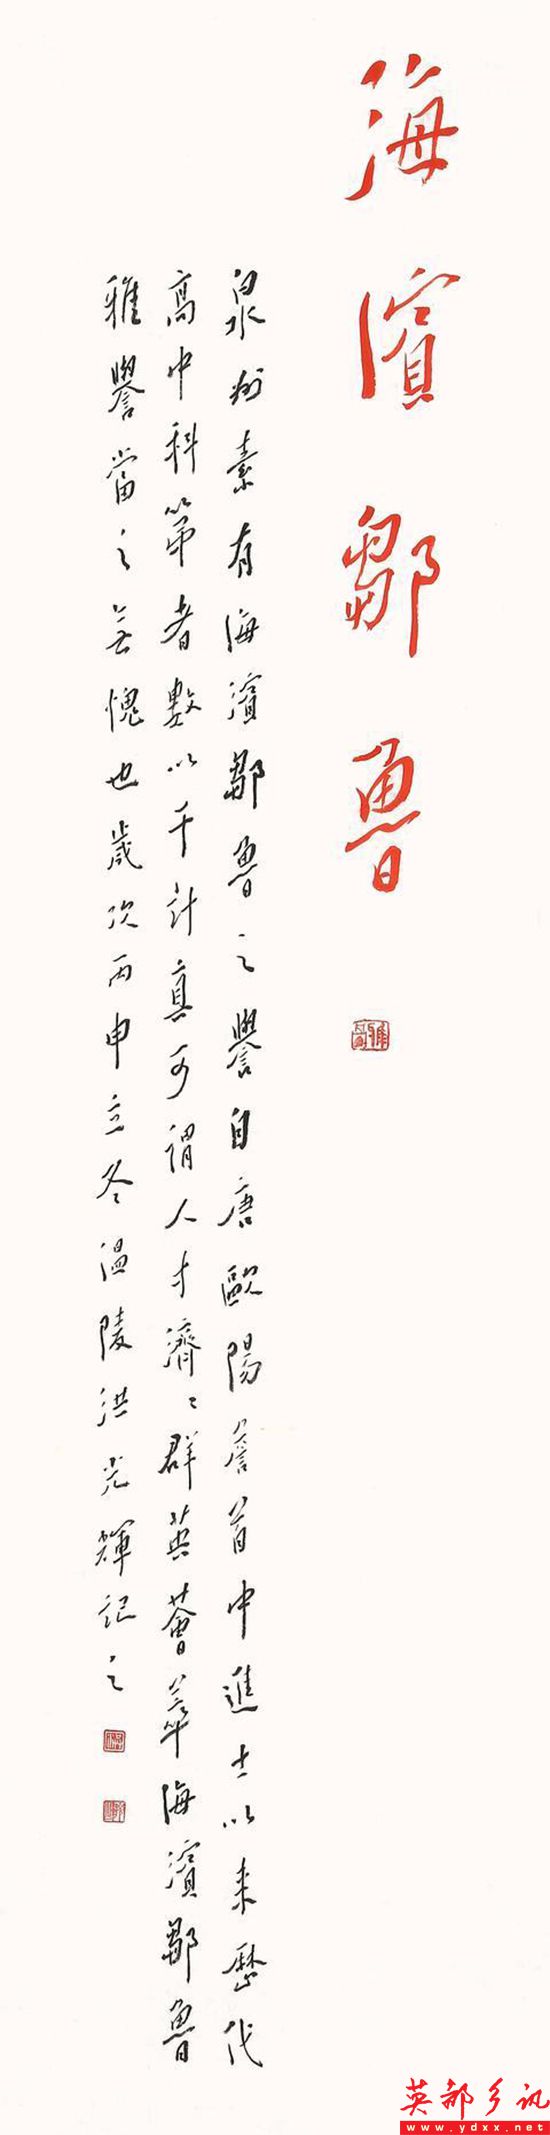 海濱鄒魯
泉州素有海濱鄒魯之譽自唐歐陽詹首中進士以來歷代
高中科第者數以千計真可謂人才濟濟群英薈萃海濱鄒魯
雅譽當之無愧也歲次丙申立冬溫陵洪光輝記之
英都乡讯
www.ydxx.net